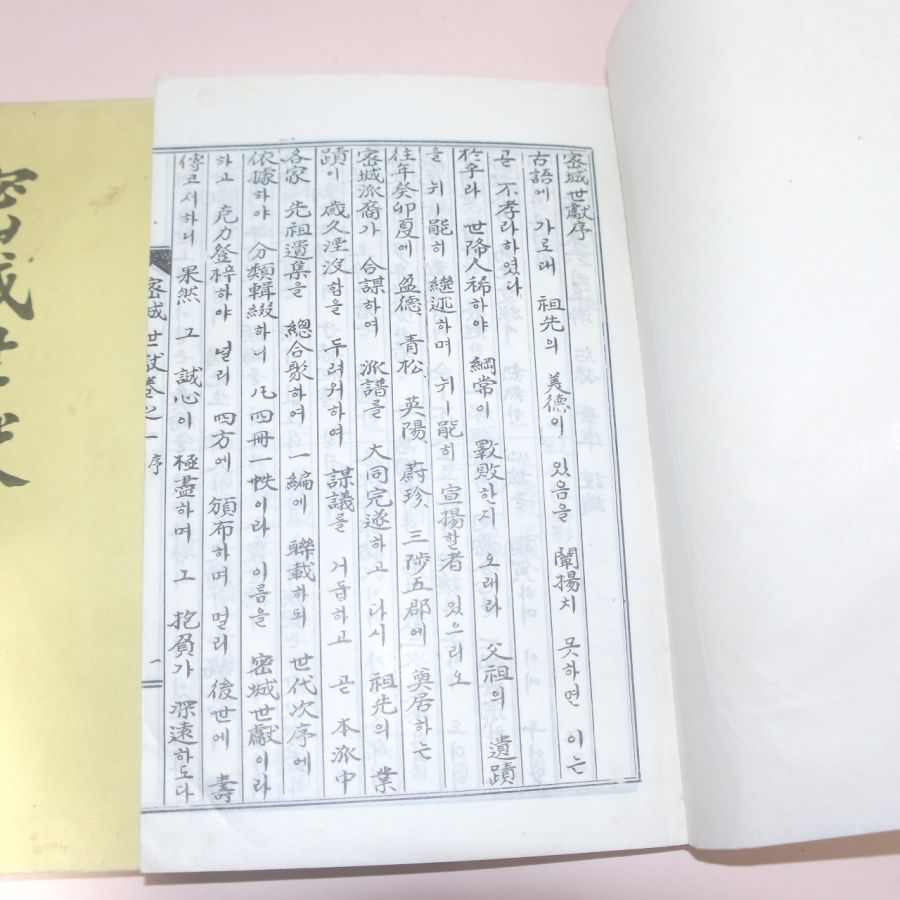 密城世獻序
古語에 가로대 祖先의 美德이 있음을 闡揚치 못하면 이는
곧 不孝라하였나
於乎라 世降人稀하야 綱常이 斁敗한지 오래라 父祖의 遺蹟
을 뉘ㅣ 能히 繼述하며 뉘ㅣ 能히 宣揚할者 있으리오
往年癸卯夏에 盈德、青松、英陽、蔚珍、三陟五郡에 奠居하는
密城派裔가 合謀하여 派譜를 大同完遂하고 다시 祖先의 業
蹟이 歲久湮沒함을 두려워하여 謀議를 거듭하고 곧 本派中
各家 先祖遺集을 總合聚하여 一編에 聯載하되 世代次序에
依據하야 分類輯綴하니 凡四冊一帙이라 이름을 密城世獻이라
하고 克力登梓하야 널리 四方에 頒布하며 멀리 後世에 壽
傳코저하니 果然 그 誠心이 極盡하며 그 抱負가 深遠하도다
密城世獻卷之一 序 一
密城世獻